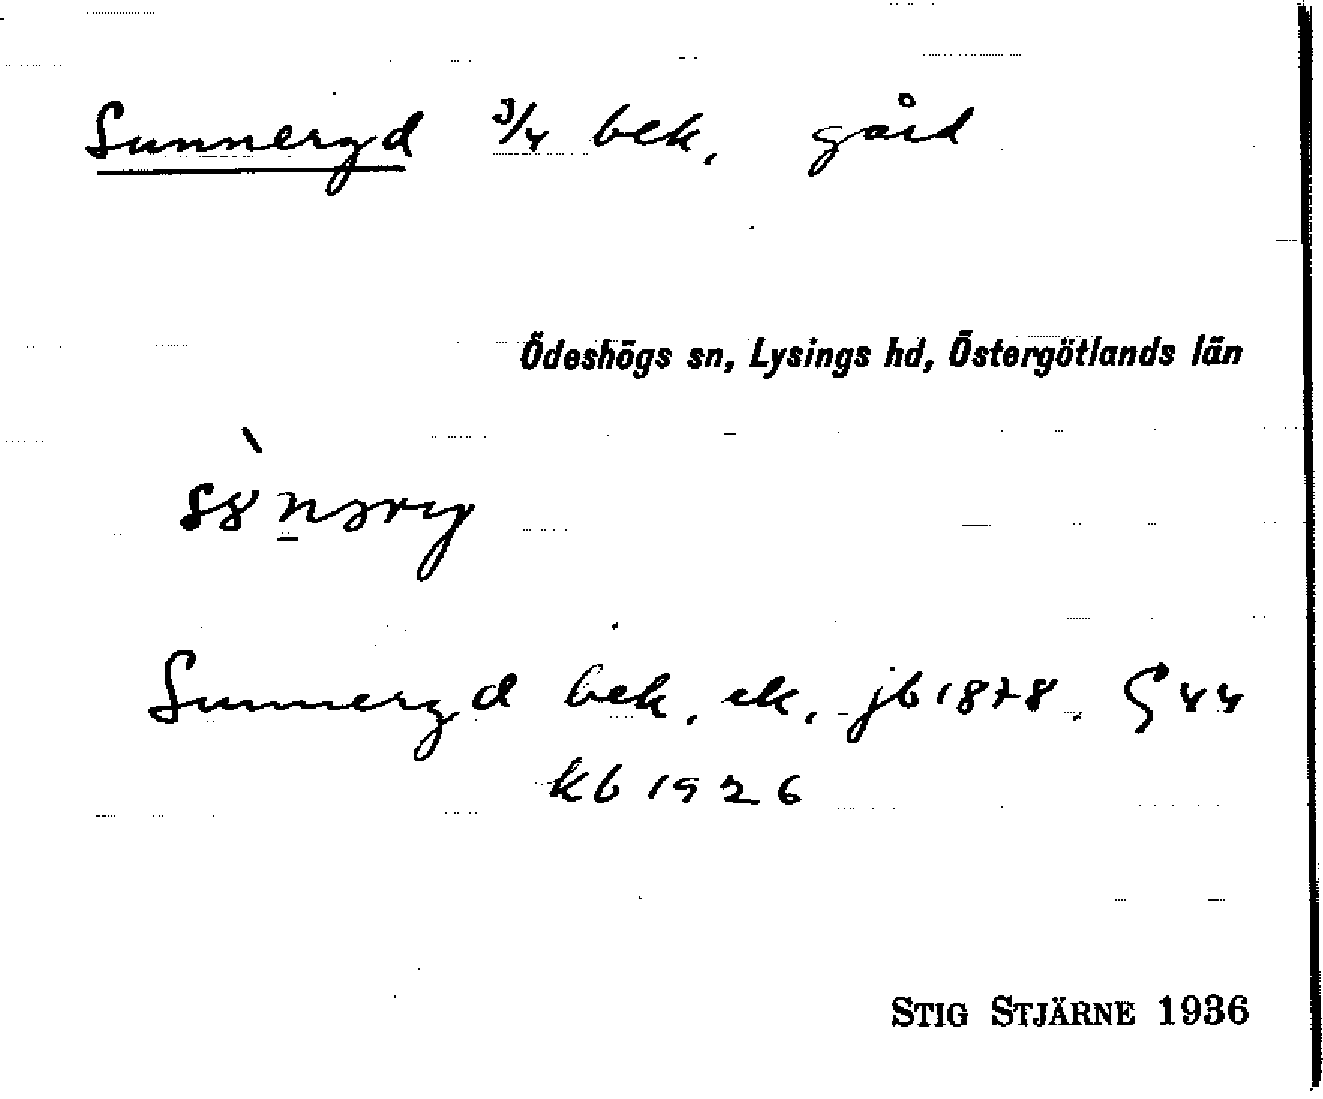 Sunneryd 3/4 bek, gård
Ödeshögs sn, Lysings hd, Östergötlands län
Sunneryd bek. ek. jb 1878. § 44
kb 1926
STIG STJÄRNE 1936